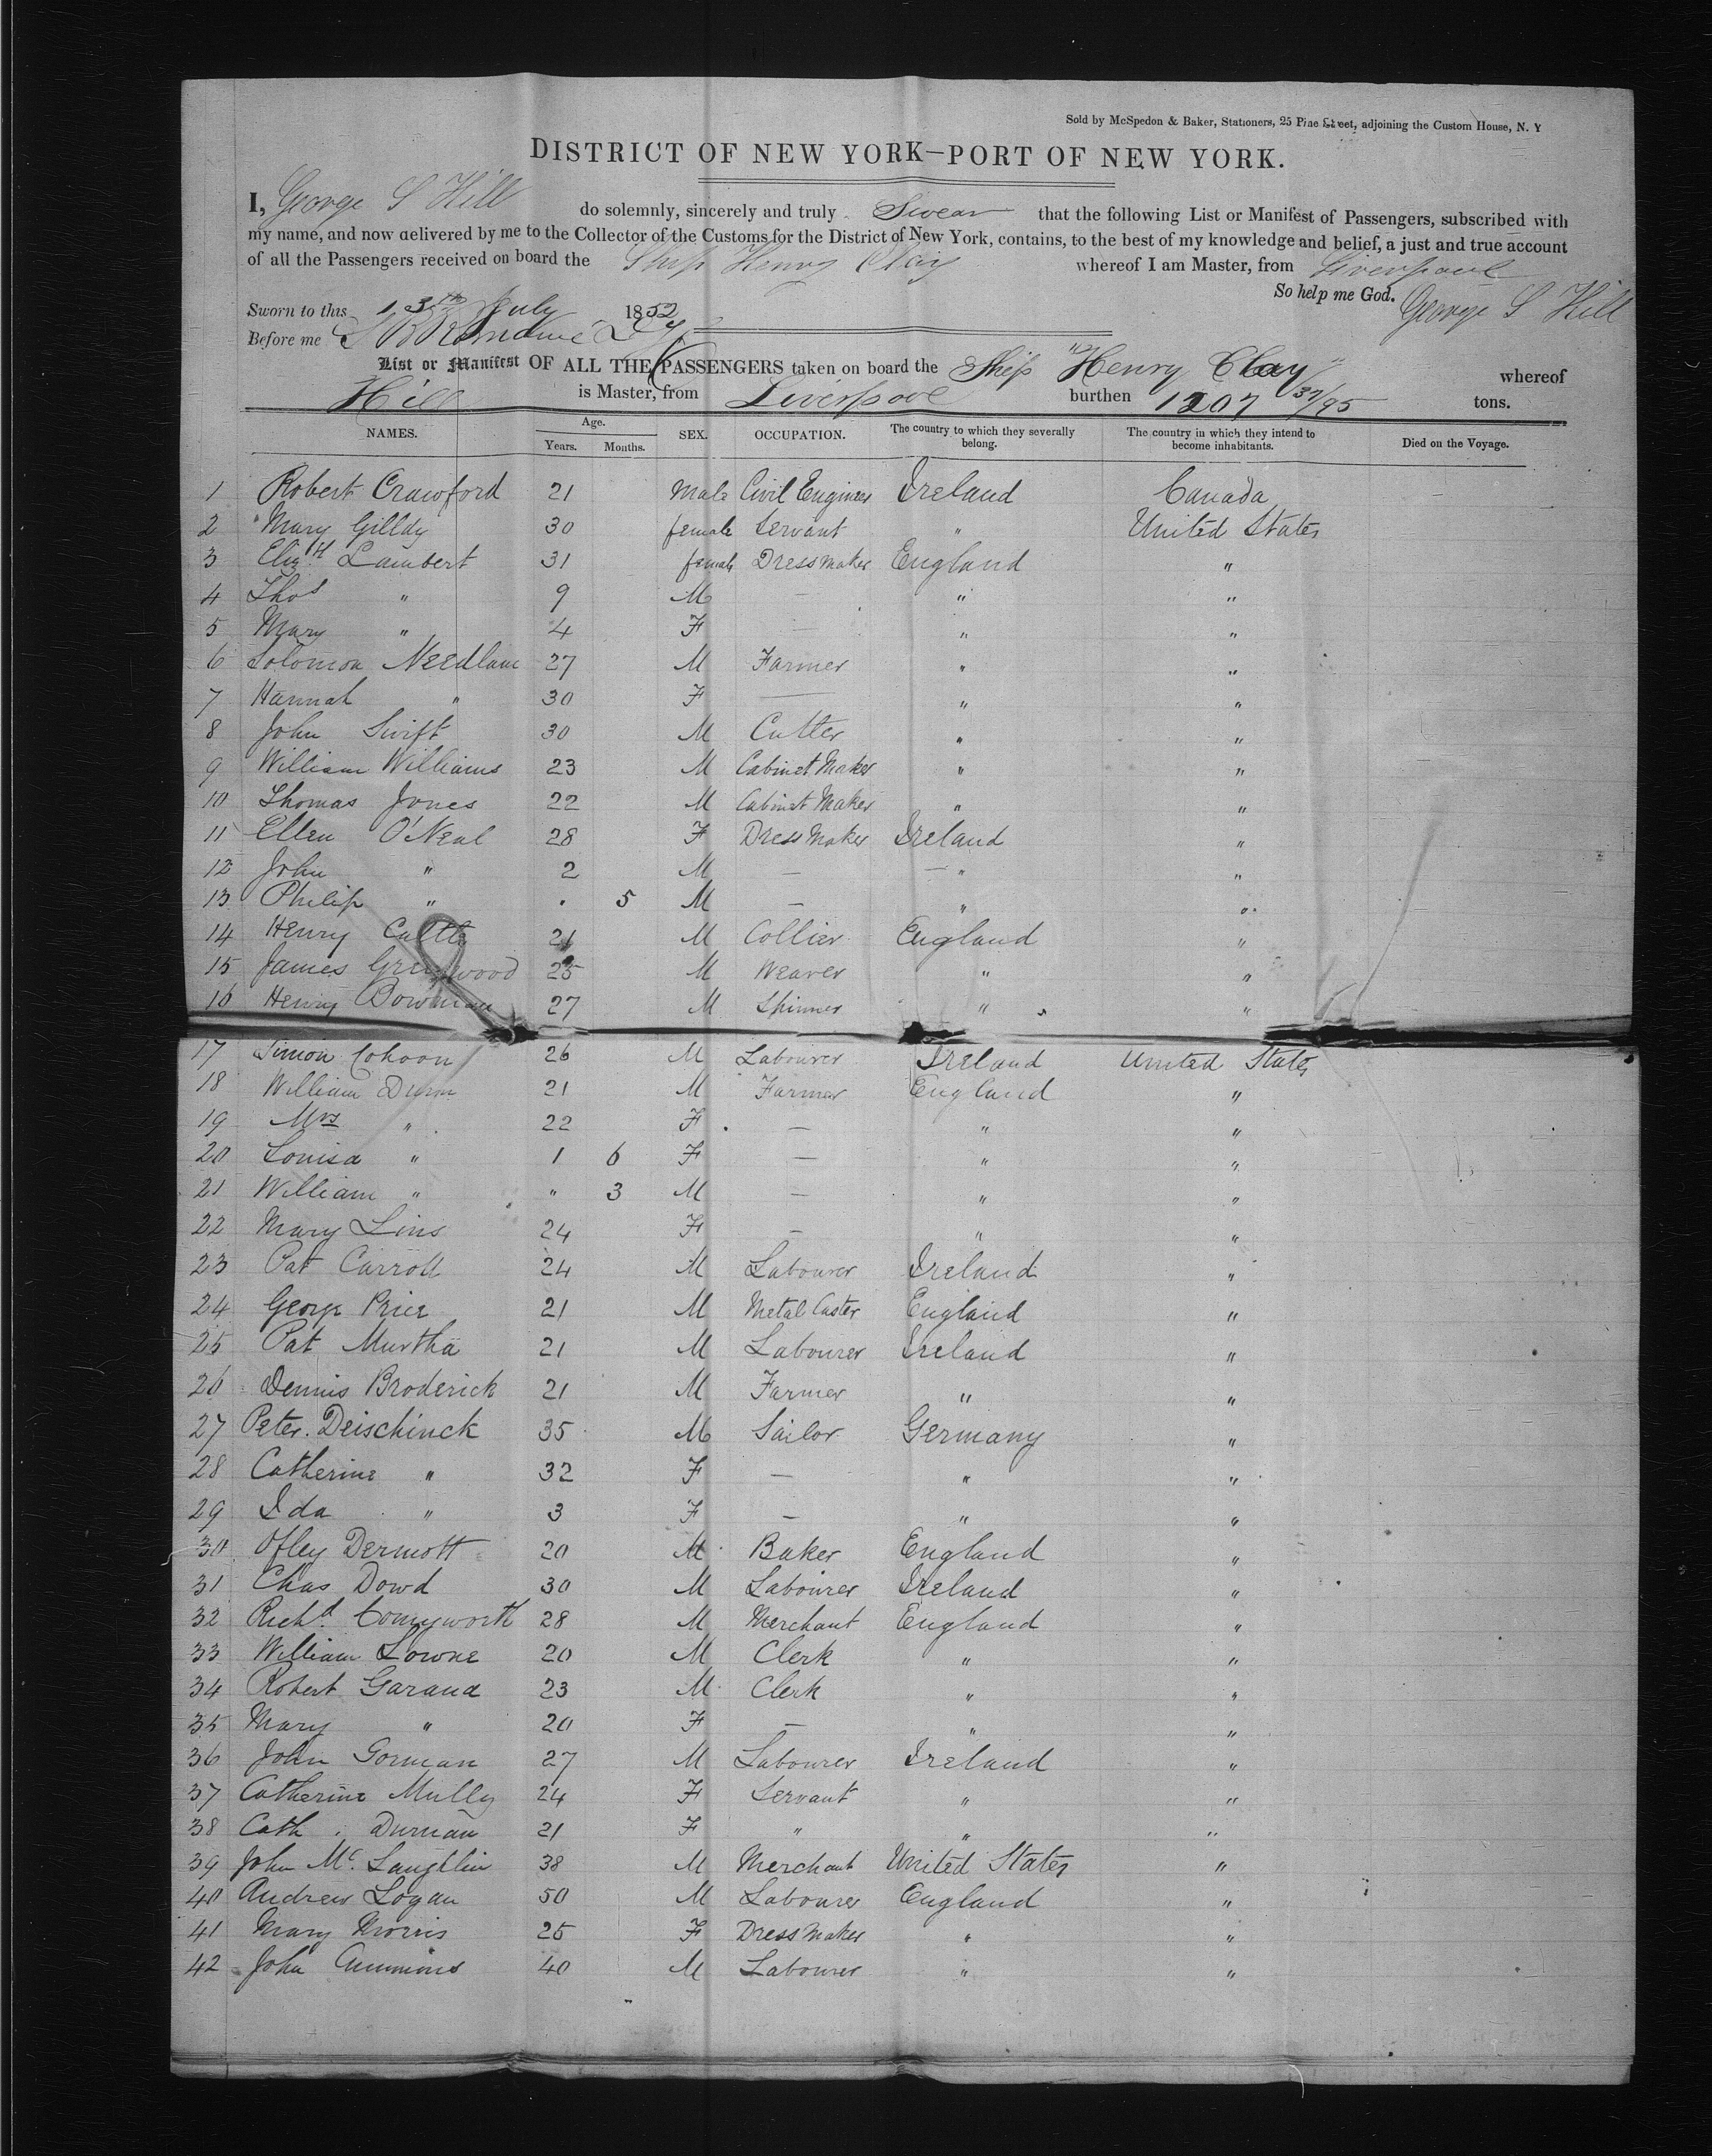 Sold by McSpedon & Baker, Stationers, 25 Pine Street, adjoining the Custom House, N. Y
DISTRICT OF NEW YORK—PORT OF NEW YORK.
I, George S Hill do solemnly, sincerely and truly Swear that the following List or Manifest of Passengers, subscribed with
my name, and now delivered by me to the Collector of the Customs for the District of New York, contains, to the best of my knowledge and belief, a just and true account
of all the Passengers received on board the Ship Henry Clay whereof I am Master, from Liverpool
So help me God. George S Hill
Sworn to this 13th July 1852
Before me
List or Manifest OF ALL THE PASSENGERS taken on board the Ship "Henry Clay" whereof
Hill is Master, from Liverpool burthen 1207 37/95 tons.
NAMES. Age. Years. Months. SEX. OCCUPATION. The country to which they severally belong. The country in which they intend to become inhabitants. Died on the Voyage.
1 Robert Crawford 21 Male Civil Engineer Ireland Canada
2 Mary Gilldy 30 female Servant " United States
3 Elizth Lambert 31 female Dress maker England "
4 Thos " 9 M — " "
5 Mary " 4 F — " "
6 Solomon Needham 27 M Farmer " "
7 Hannah " 30 F — " "
8 John Swift 30 M Cutter " "
9 William Williams 23 M Cabinet Maker " "
10 Thomas Jones 22 M Cabinet Maker " "
11 Ellen O'Neal 28 F Dress Maker Ireland "
12 John " 2 M — " "
13 Philip " " 5 M — " "
14 Henry 21 M Collier England "
15 James Greenwood 25 M Weaver " "
16 Henry Bowman 27 M Spinner " "
17 Simon Cohoon 26 M Labourer Ireland United States
18 William Dunn 21 M Farmer England "
19 Mrs " 22 F — " "
20 Louisa " 1 6 F — " "
21 William " " 3 M — " "
22 Mary Lins 24 F — " "
23 Pat Carroll 24 M Labourer Ireland "
24 George Price 21 M Metal Caster England "
25 Pat Murtha 21 M Labourer Ireland "
26 Dennis Broderick 21 M Farmer " "
27 Peter Deischinck 35 M Sailor Germany "
28 Catherine " 32 F — " "
29 Ida " 3 F — " "
30 Ofley Dermott 20 M Baker England "
31 Chas Dowd 30 M Labourer Ireland "
32 Richd. 28 M Merchant England "
33 William Lowne 20 M Clerk " "
34 Robert Garand 23 M Clerk " "
35 Mary " 20 F — " "
36 John Gorman 27 M Labourer Ireland "
37 Catherine Mully 24 F Servant " "
38 Cath. Durnan 21 F " " "
39 John McLaughlin 38 M Merchant United States "
40 Andrew Logan 50 M Labourer England "
41 Mary Morris 25 F Dress Maker " "
42 John Cummins 40 M Labourer " "